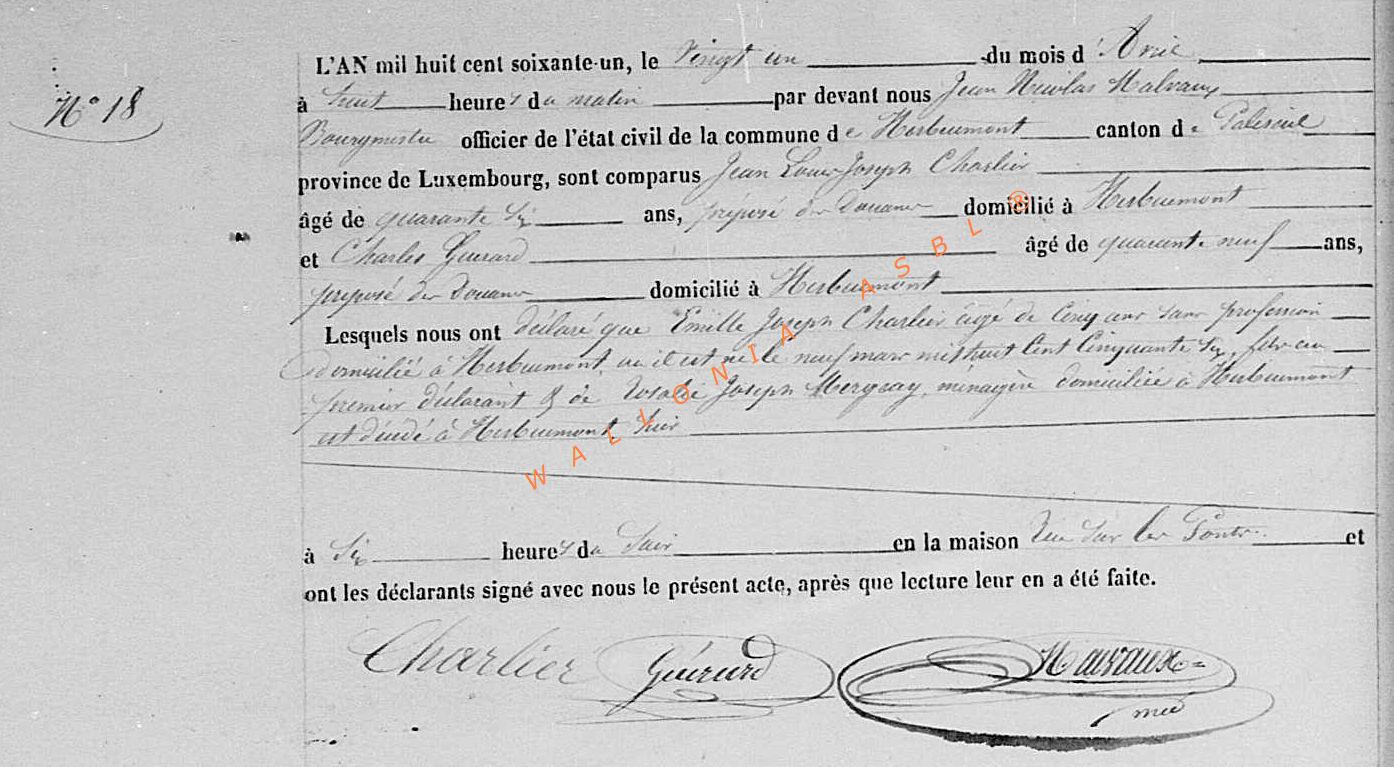 L'AN mil huit cent soixante-un, le Vingt un du mois d'Avril
N° 18
à huit heures du matin par devant nous Jean Nicolas Malvaux
Bourgmestre officier de l'état civil de la commune de Herbeumont canton de Paliseul
province de Luxembourg, sont comparus Jean Louis Joseph Charlier
âgé de quarante six ans, préposé des Douanes domicilié à Herbeumont
et Charles Guérard âgé de quarante neuf ans,
préposé des Douanes domicilié à Herbeumont
Lesquels nous ont déclaré que Emille Joseph Charlier âgé de Cinq ans sans profession
Domicilié à Herbeumont, ou il est né le neuf mars mil huit Cent Cinquante Six, fils au
premier déclarant & de Rosalie Joseph Mergeay, ménagère domiciliée à Herbeumont
est décédé à Herbeumont hier
à Six heures du Soir en la maison Rue Sur les Ponts et
ont les déclarants signé avec nous le présent acte, après que lecture leur en a été faite.
Charlier Guérard Malvaux
WALLONIA ASBL ®